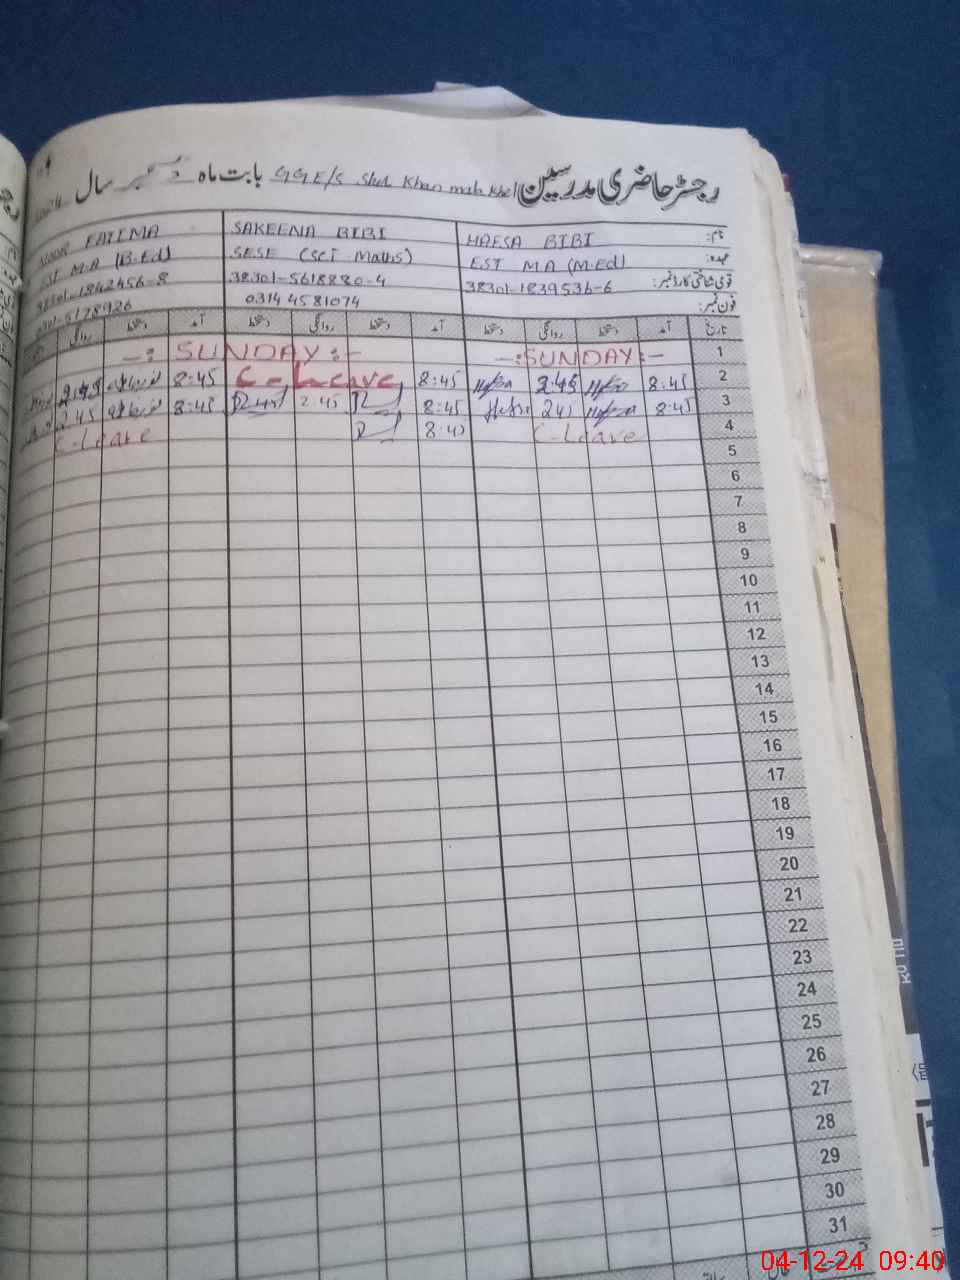 رجسٹر حاضری مدرسین GGE/S Shah Khan mah khel بابت ماہ دسمبر سال
نام: HAFSA BIBI SAKEENA BIBI NOOR FATIMA
عہدہ: EST M.A (M.Ed) SESE (Sci Maths) EST M.A (B.Ed)
قومی شناختی کارڈ نمبر: 38301-1839536-6 38301-5618880-4 38301-1842456-8
فون نمبر: 0314 4581074
تاریخ آمد دستخط روانگی دستخط آمد دستخط روانگی دستخط آمد دستخط روانگی
1 -:SUNDAY:- -: SUNDAY :-
2 8:45 2:45 8:45 C-Leave 8:45 2:45
3 8:45 8:45 2:45 8:45 2:45
4 C-Leave 8:45 C-Leave
5
6
7
8
9
10
11
12
13
14
15
16
17
18
19
20
21
22
23
24
25
26
27
28
29
30
31
04-12-24 09:40